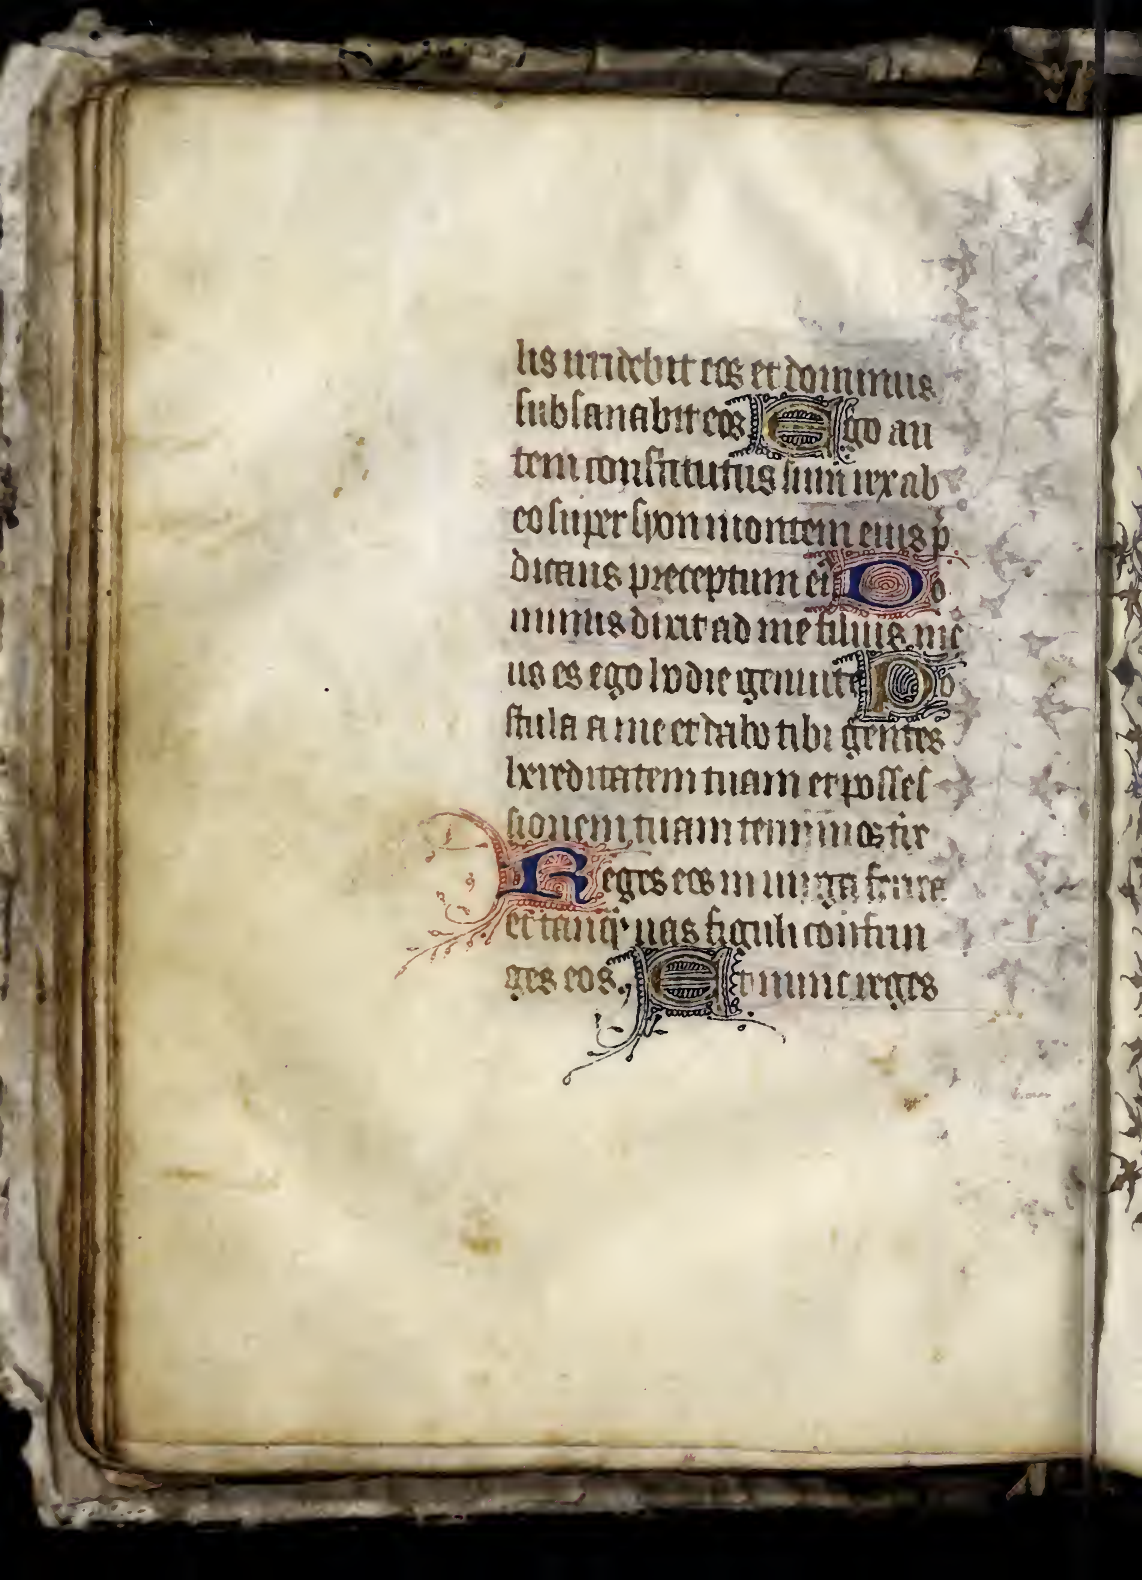 lis irridebit eos et dominus
subsanabit eos Ego au
tem constitutus sum rex ab
eo super syon montem eius p̄
dicans preceptum ei Do
minus dixit ad me filius me
us es ego hodie genui te Po
stula a me et dabo tibi gentes
hereditatem tuam et posses
sionem tuam terminos tir
Reges eos in uirga ferrea
et tanq̄ uas figuli confrin
ges eos. Et nunc reges